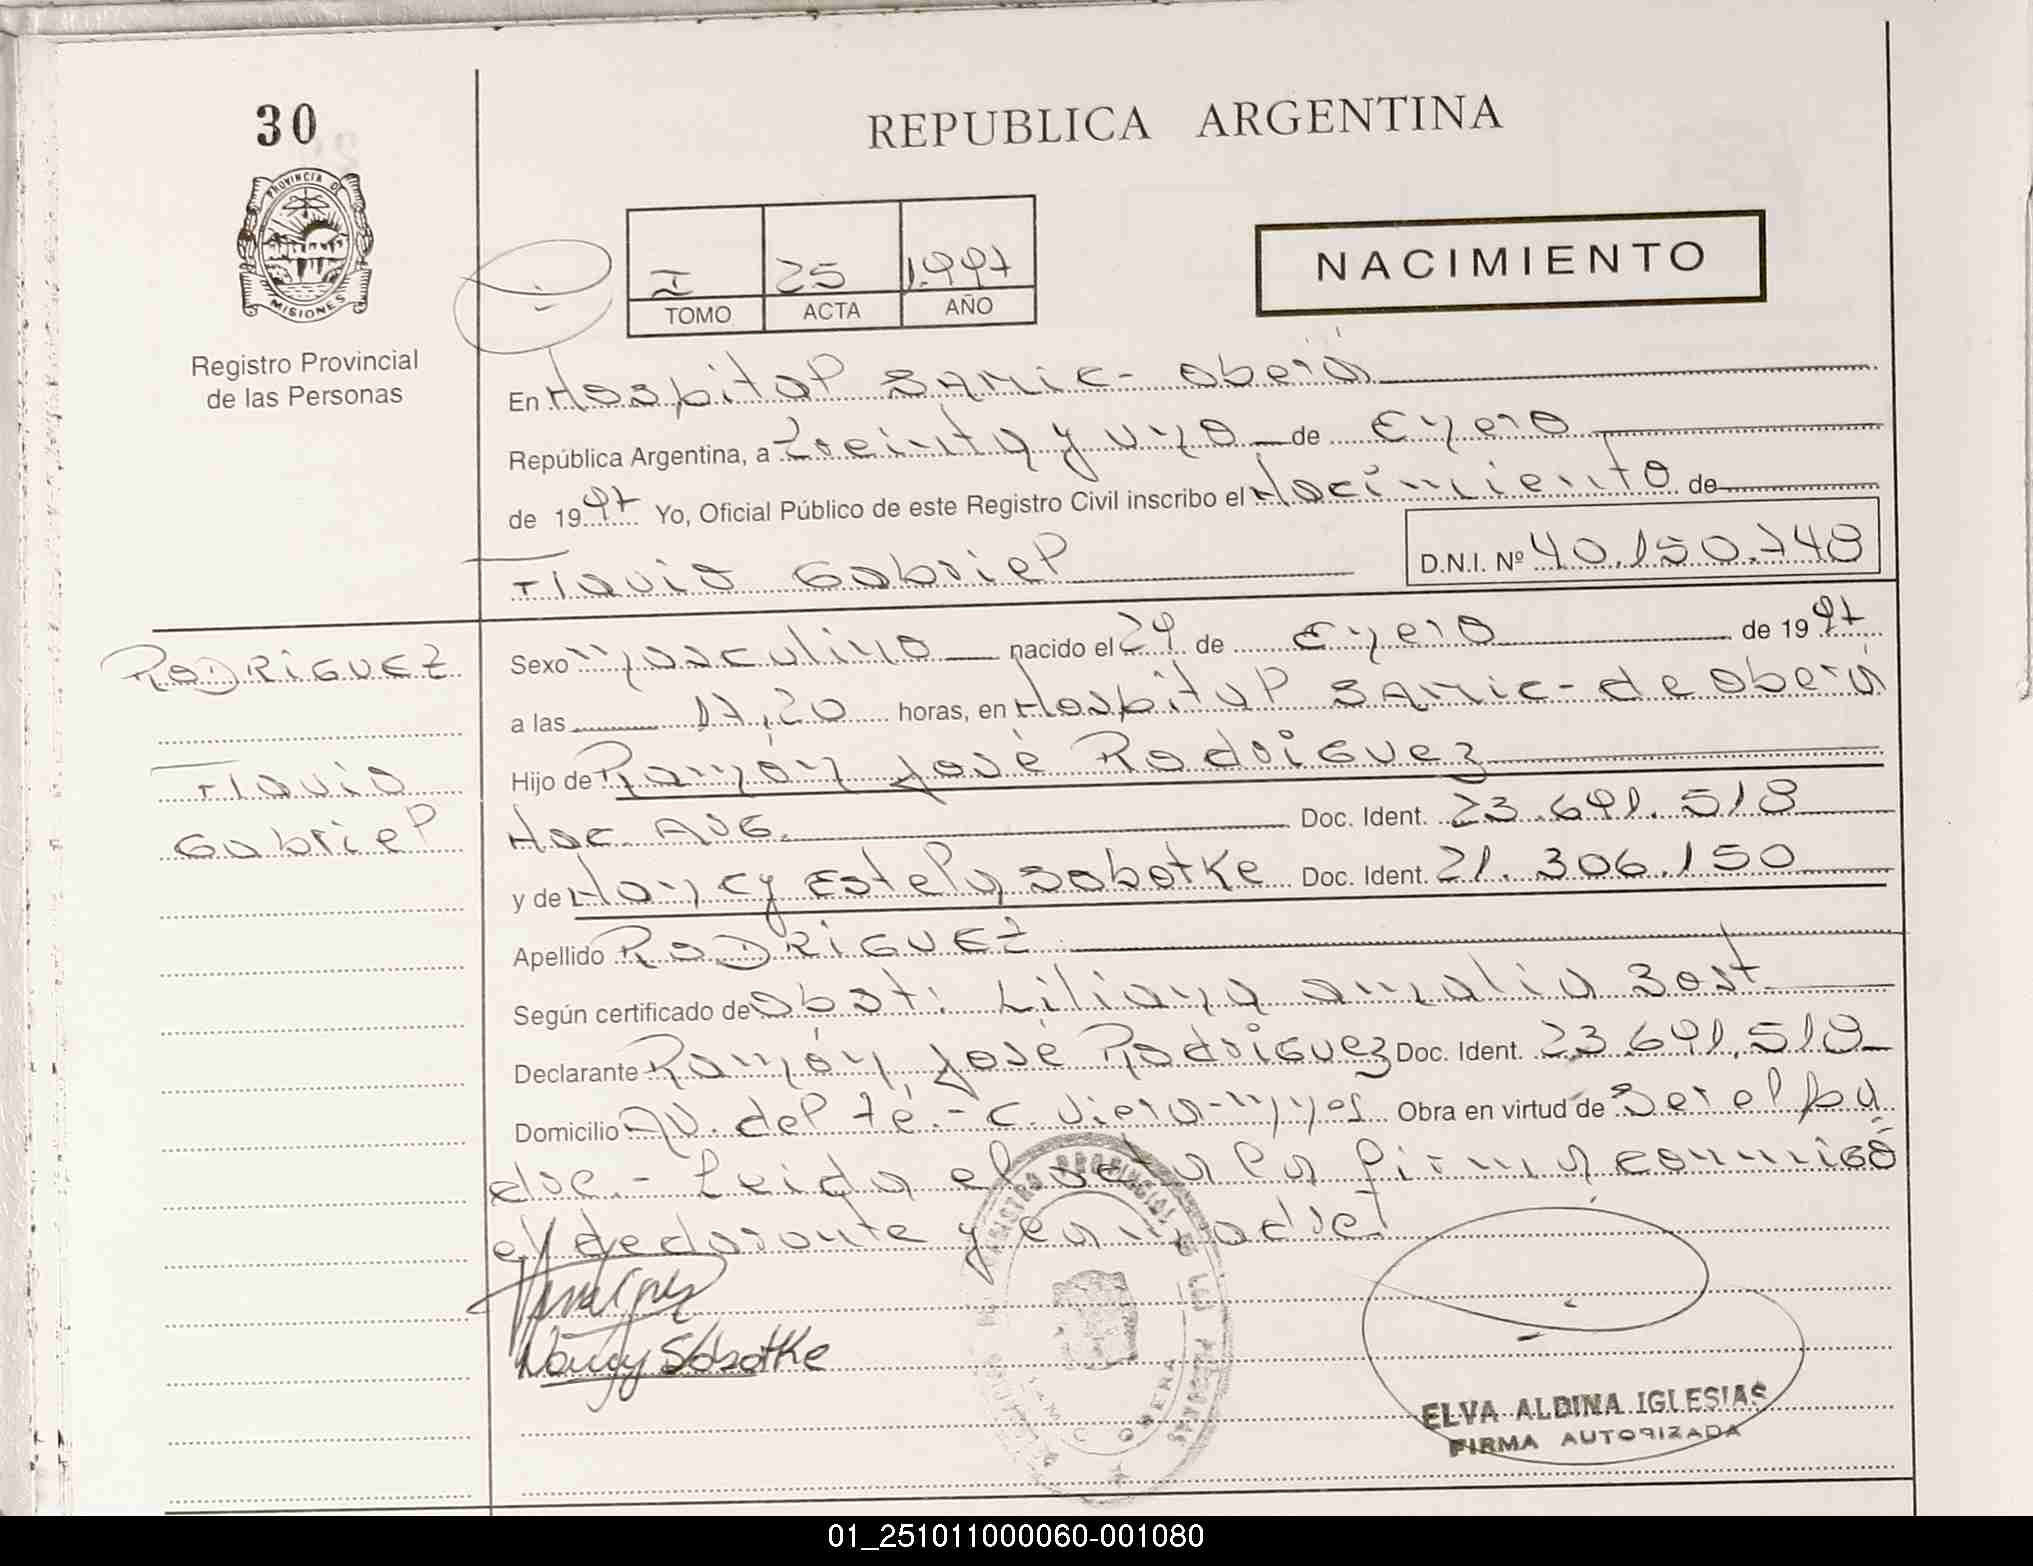 30
REPUBLICA ARGENTINA
PROVINCIA DE
MISIONES
Registro Provincial
de las Personas
I 25 1.997
TOMO ACTA AÑO
NACIMIENTO
En Hospital SAMIC - Oberá
República Argentina, a treinta y uno de Enero
de 1997 Yo, Oficial Público de este Registro Civil inscribo el Nacimiento de
Flavio Gabriel
D.N.I. Nº 40.150.748
RODRIGUEZ
Flavio
Gabriel
Sexo masculino nacido el 29 de Enero de 1997
a las 17,20 horas, en Hospital SAMIC - de Oberá
Hijo de Ramón José Rodriguez
Nac. Arg. Doc. Ident. 23.691.518
y de Nancy Estela Sobotke Doc. Ident. 21.306.150
Apellido RODRIGUEZ
Según certificado de Obst: Liliana Amalia Bost
Declarante Ramón José Rodriguez Doc. Ident. 23.691.518
Domicilio AV. del té. - C. Viera - Mnes Obra en virtud de Ser el pa
dre. - Leida el acta la firma conmigo
el declarante y la madre
Nancy Sobotke
REGISTRO PROVINCIAL DE LAS PERSONAS
OBERA
ELVA ALDINA IGLESIAS
FIRMA AUTORIZADA
01_251011000060-001080